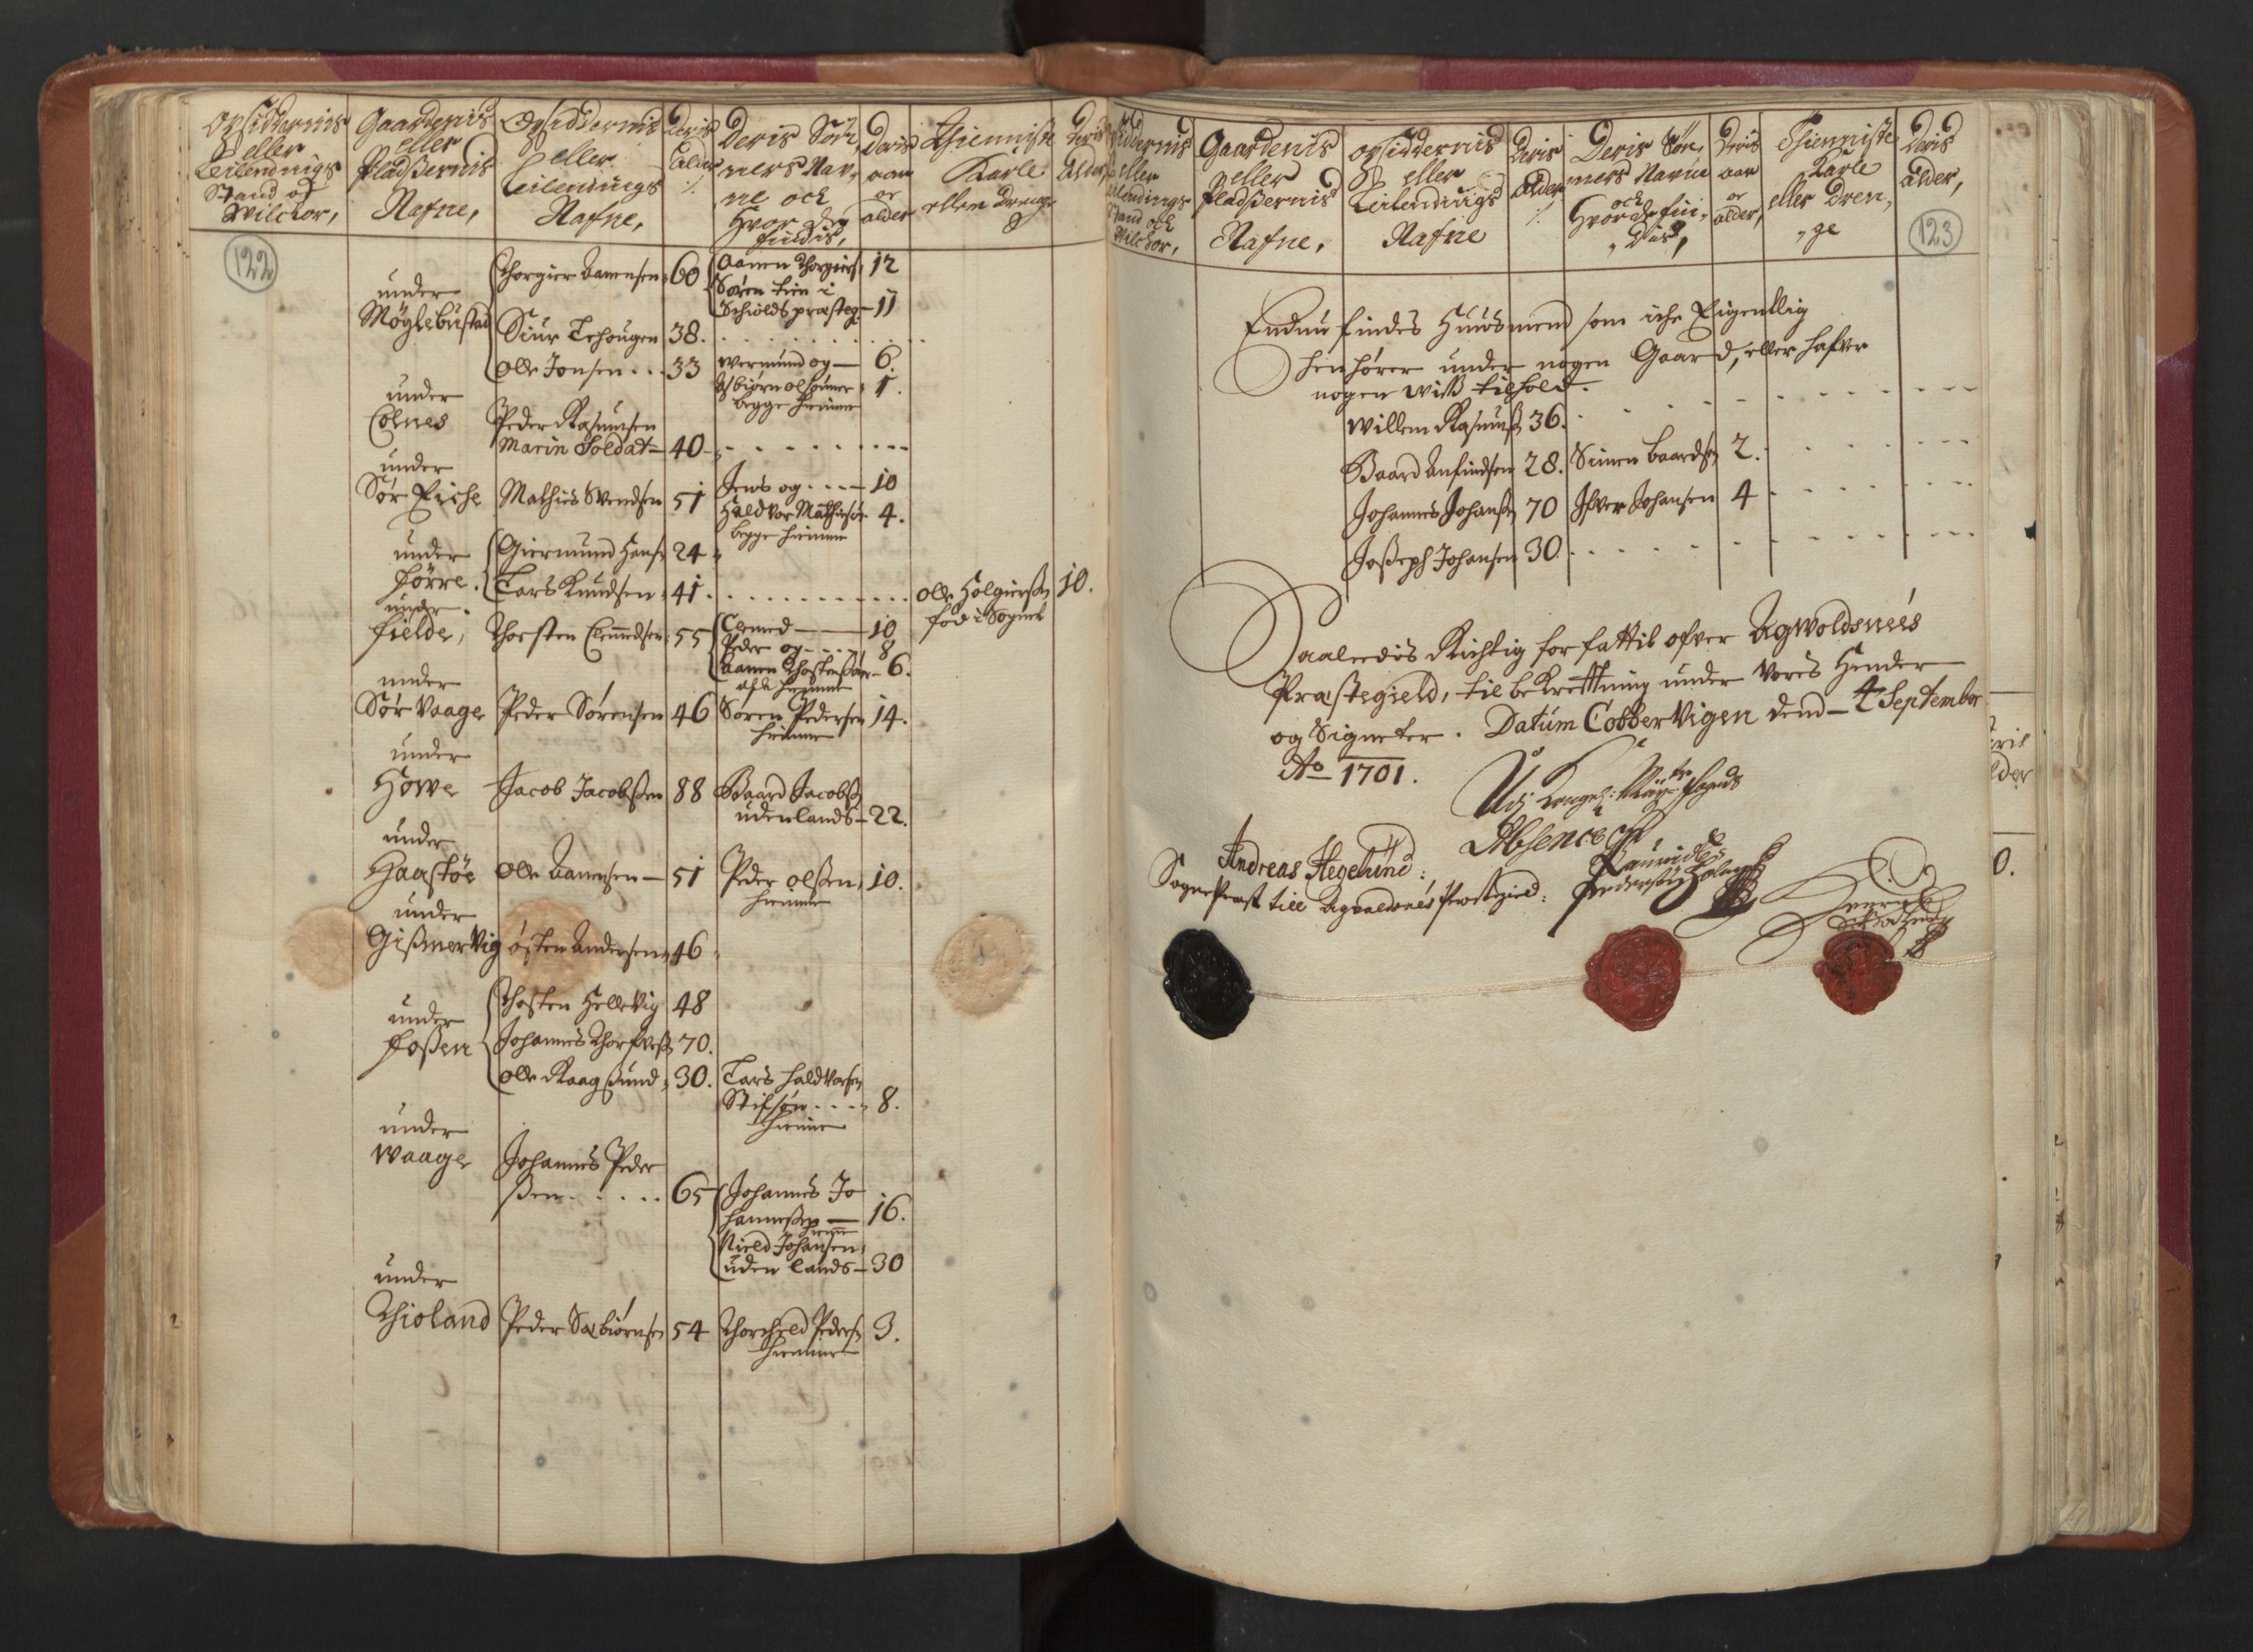 Opsiddernis
eller
Leilendings
Stand og
Wilckor,
Gaardenis
eller
Pladsernis
Nafne,
Opsiddernis
eller
Leilendings
Nafne,
Deris
alder
Deris Søn¸
ners Nav¸
ne och
Hvor de
findis,
Deris
aar
or
alder
Thienniste
Karle
eller Drenge
Deris
alder,
122
under
Møglebustad
Thorgier Aanensen 60 Aanen Thorgiers¸ 12
Søren tien i
Schiolds præsteg¸ 11
Siur Tehougen 38.
Olle Jonsen 33 Wermund og 6.
Asbiørn olsønner 1.
begge hiemme
under
Colnes Peder Rasmusen
Marin Soldat 40
under
Sør Eiche Mathies Svendsen 51 Jens og 10
Haldvor Mathiesøn 4.
begge hiemme
under
Førre. Giermund Hans¸ 24
Lars Knudsen 41. Olle Holgiersen 10.
fød i Sognet
under
Fielde, Thorsten Clemmedsen 55 Clemed 10
Peder og 8
Aanen Thorstensøn 6.
alle hiemme
under
Sør Vaage Peder Sørensen 46 Søren Pedersen 14.
hiemme
under
Howe Jacob Jacobsen 88 Baard Jacobs¸
udenlands 22.
under
Haastøe Olle Aanensen 51 Peder olsen 10.
hiemme
under
Gismervig østen Andersen 46
under
Fosen Thosten Hellevig 48
Johannes Thorfves¸ 70.
Olle Raagsund 30. Lars Haldvorsen
Stifsøn 8.
hiemme
under
Waage Johannes Peder
sen 65 Johannes Jo
hannessen 16.
hiemme
Nield Johansen
uden lands 30
under
Thioland Peder Sæbiørnsen 54 Thorcheld Peders¸ 3.
hiemme
Opsiddernis
eller
Leilendings
Stand och
Wilckor,
Gaardenis
eller
Pladsernis
Nafne,
opsiddernis
eller
Leilendings
Nafne
Deris
alder
Deris Søn¸
ners Navne
och
Hvor de fin¸
dis,
Deris
aar
or
alder,
Thienniste
Karle
eller Dren¸
ge
Deris
alder,
123
Endnu findes Huusmend som iche Eigentlig
henhører under nogen Gaard, eller hafver
nogen wiss tilhold.
Willem Rasmus¸ 36.
Baard Anfindsen 28. Simen Baards¸ 2.
Johannes Johans¸ 70 Ifver Johansen 4
Joseph Johansen 30.
Saaledis Richtig forfattit ofver Agwoldsnes
Præstegield, til bekrefftning under Vores Hender
og Signeter. Datum Cobbervigen dend 4 September
Ao 1701.
Udi Kongl: Mayts fogeds
Absence
Andreas Hegelund:
Sognepræst till Agvaldsnes Præstegield:
Laurids
Henrich